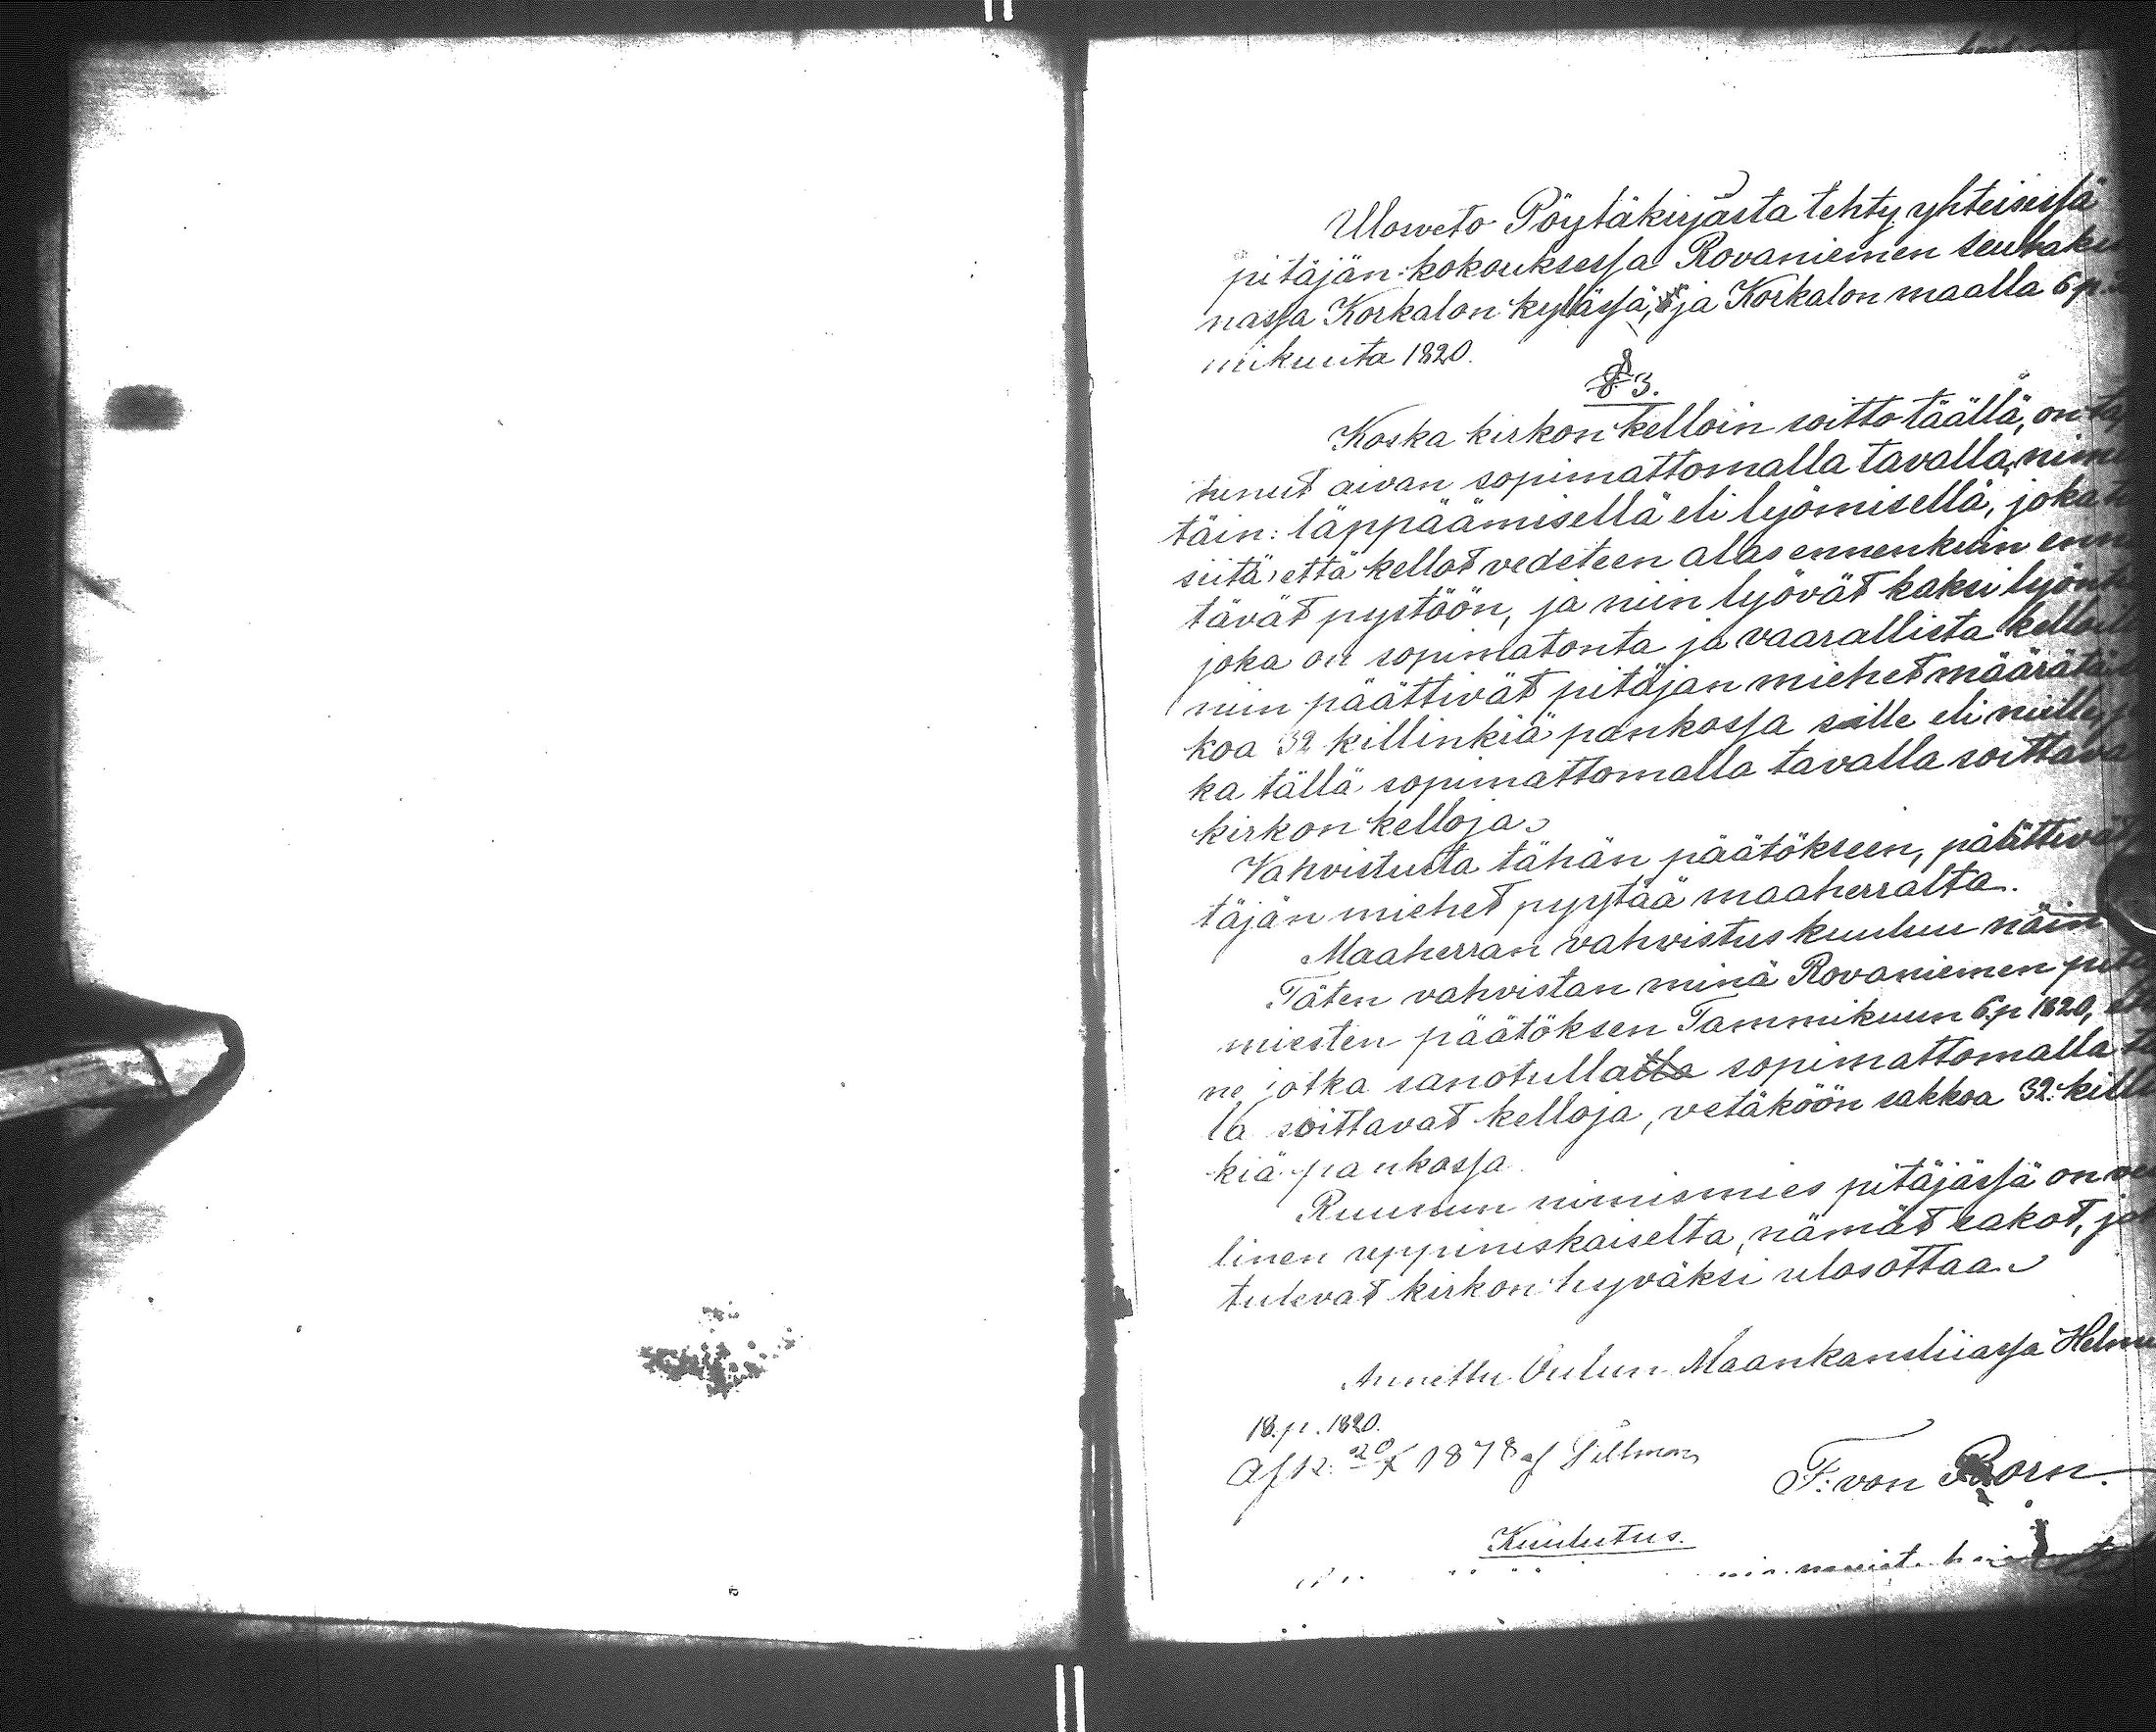 Uloweto Pöytäkirjasta tehty yhteisessä
pitäjän kokouksessa Rovaniemen seuraku
nassa Korkalon kylässä, ja Korkalon maalla 6 p.
mikuuta 1820.
§ 3.
Koska kirkon kelloin soitto täällä, on ta
tunut aivan sopimattomalla tavalla, nime
täin: läppäämisellä eli lyömisellä, joka tu
siitä, että kellot vedeteen alas ennenkuin enn
tävät pystöön, ja niin lyövät kaksi lyön
joka on sopimatonta ja vaarallista kelloil
niin päättivät pitäjan miehet määrätä
koa 32 killinkiä pankossa sille eli niille
ka tällä sopimattomalla tavalla soittava
kirkon kelloja.
Vahvistusta tähän päätökseen, päättivät
täjän miehet pyytää maaherralta.
Maaherran vahvistus kuuluu näin
Täten vahvistan minä Rovaniemen pitä
miesten päätöksen Tammikuun 6 p 1820, ett
ne jotka sanotulla sopimattomalla ta
la soittavat kelloja, vetäköön sakkoa 32. killi
kiä pankossa.
Ruunun nimismies pitäjässä on vel
linen uppiniskaiselta, nämät sakot, jo
tulevat kirkon hyväksi ulosottaa.
Annettu Oulun Maankansliiassa Helmi
18. p. 1820.
Afsk. 20/X 1878 af
F. von Born.
Kuulutus.